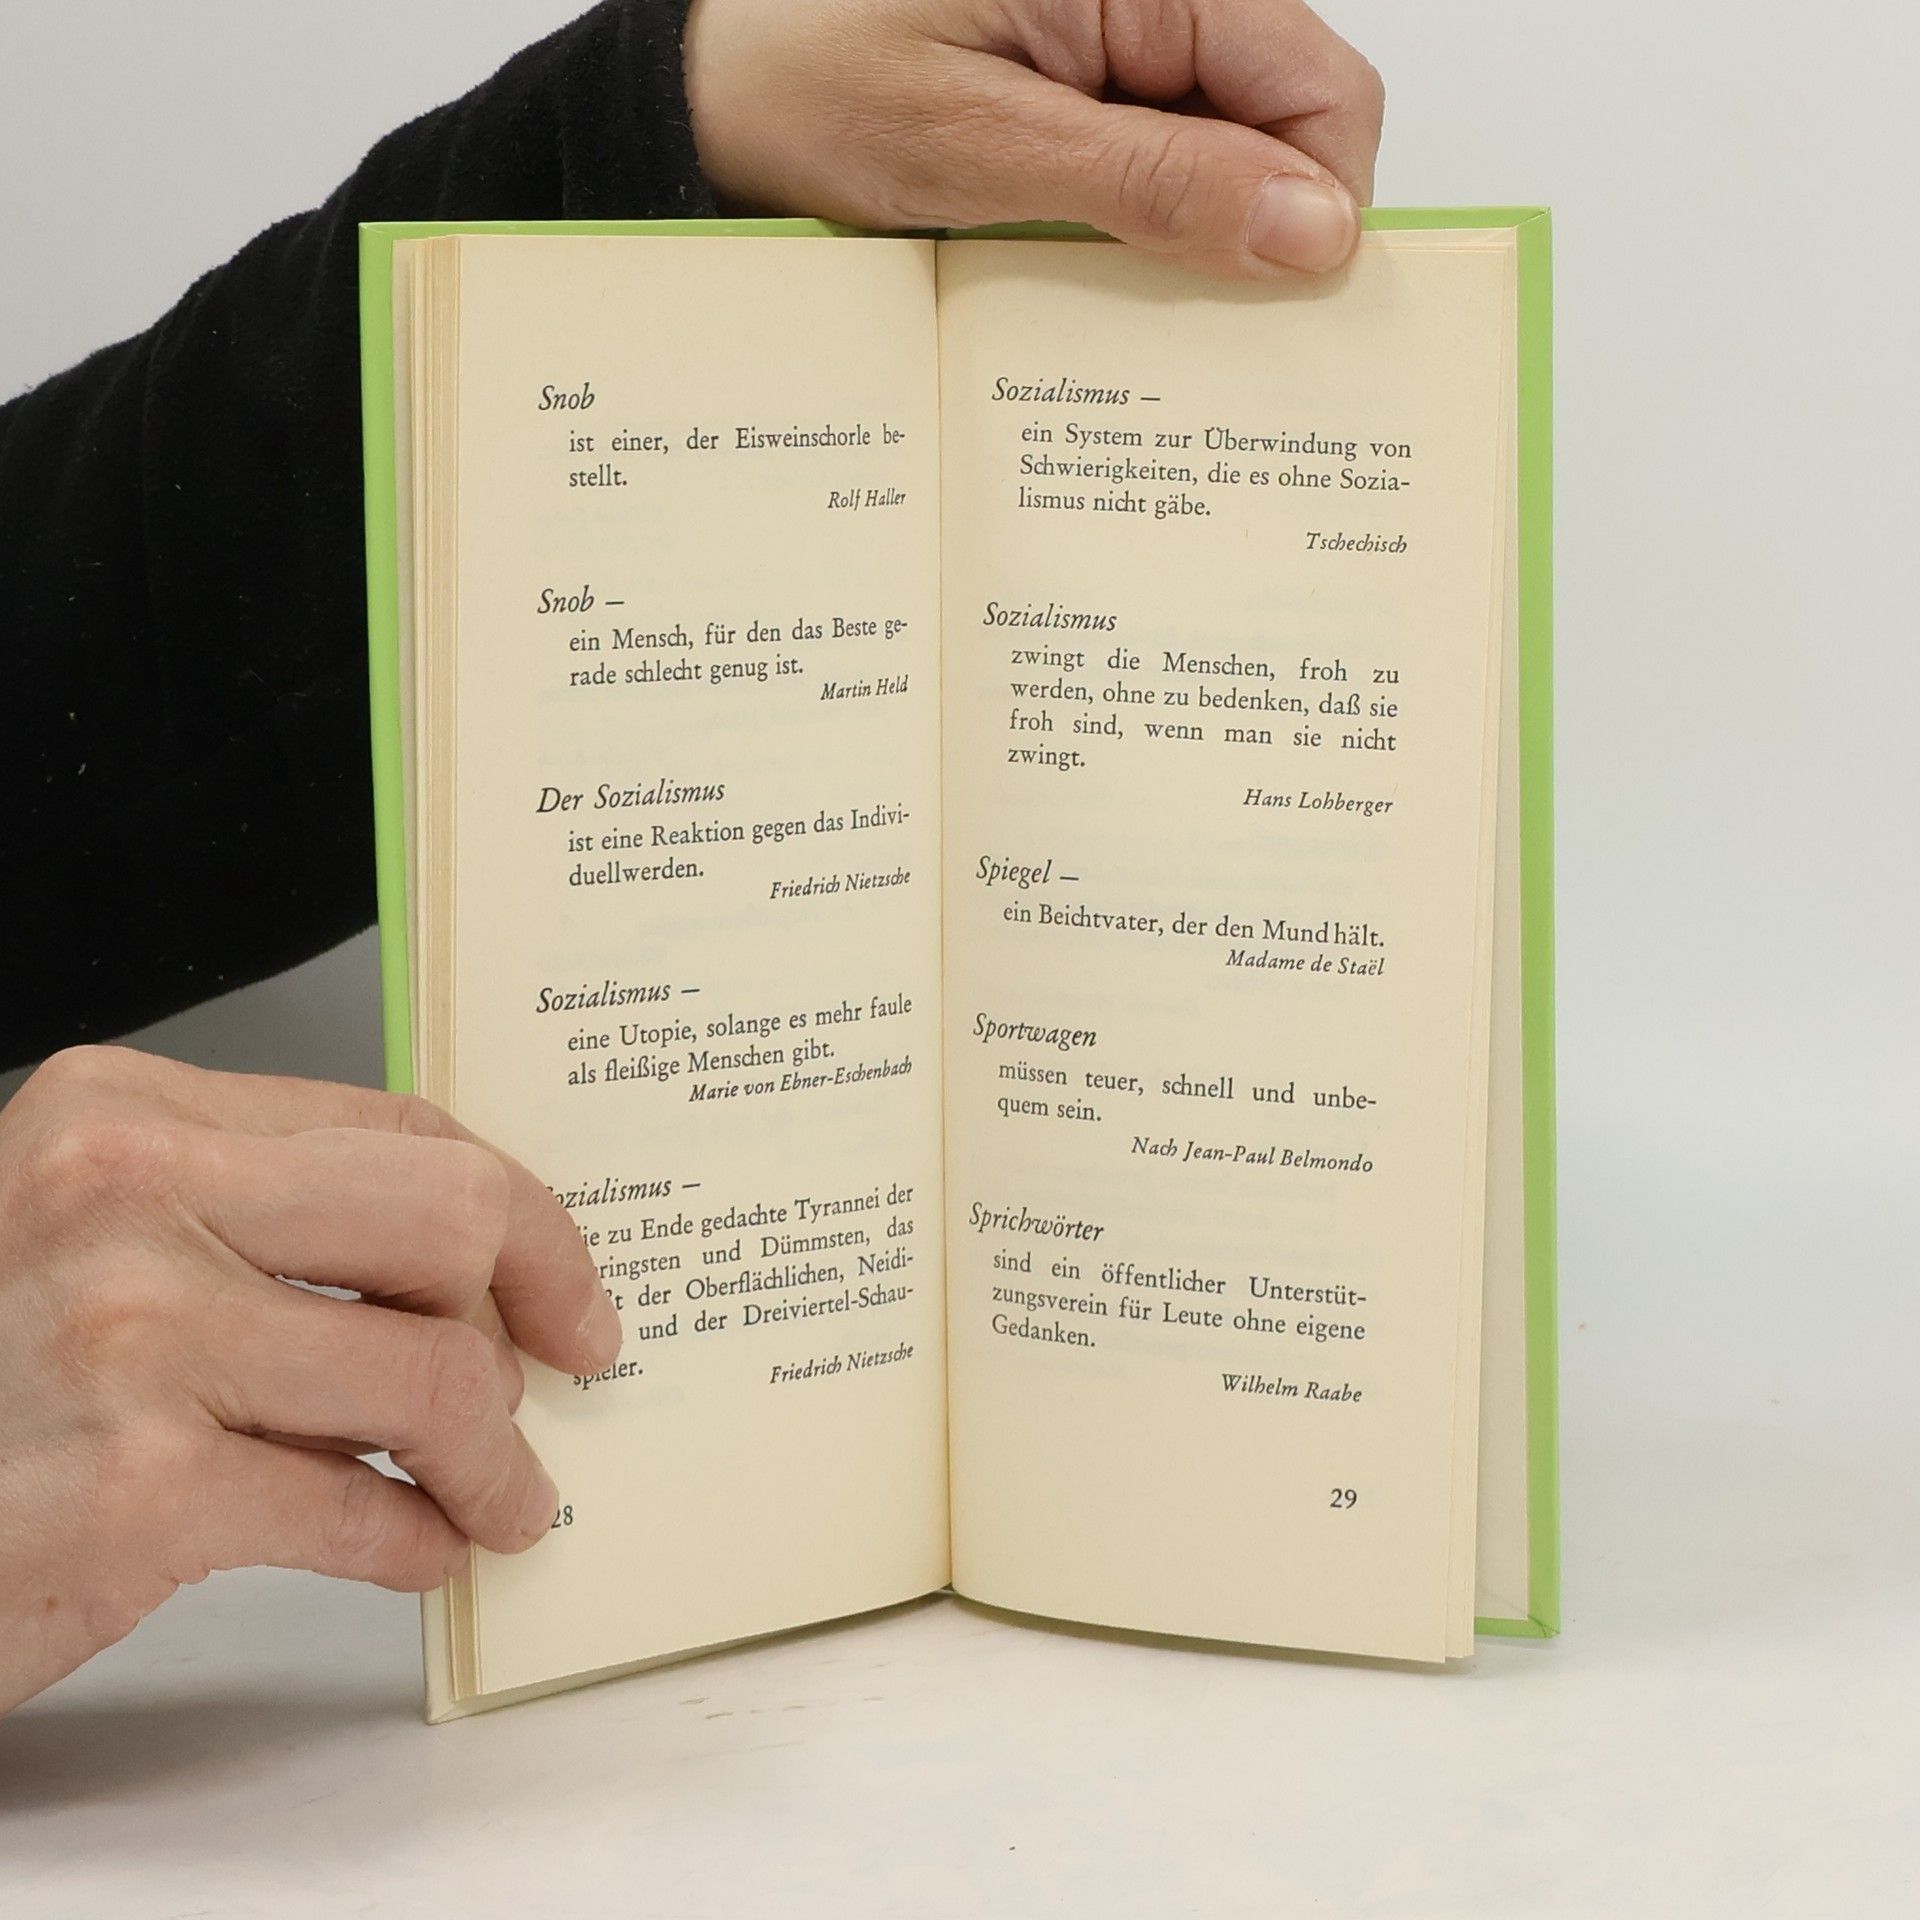 Snob
ist einer, der Eisweinschorle be-
stellt.
Rolf Haller
Snob —
ein Mensch, für den das Beste ge-
rade schlecht genug ist.
Martin Held
Der Sozialismus
ist eine Reaktion gegen das Indivi-
duellwerden.
Friedrich Nietzsche
Sozialismus —
eine Utopie, solange es mehr faule
als fleißige Menschen gibt.
Marie von Ebner-Eschenbach
Sozialismus —
zu Ende gedachte Tyrannei der
und Dümmsten, das
der Oberflächlichen, Neidi-
und der Dreiviertel-Schau-
spieler.
Friedrich Nietzsche
28
Sozialismus —
ein System zur Überwindung von
Schwierigkeiten, die es ohne Sozia-
lismus nicht gäbe.
Tschechisch
Sozialismus
zwingt die Menschen, froh zu
werden, ohne zu bedenken, daß sie
froh sind, wenn man sie nicht
zwingt.
Hans Lohberger
Spiegel —
ein Beichtvater, der den Mund hält.
Madame de Staël
Sportwagen
müssen teuer, schnell und unbe-
quem sein.
Nach Jean-Paul Belmondo
Sprichwörter
sind ein öffentlicher Unterstüt-
zungsverein für Leute ohne eigene
Gedanken.
Wilhelm Raabe
29